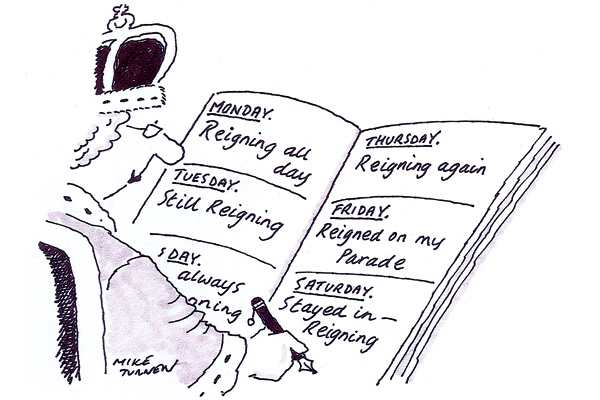 MONDAY.
Reigning all
day
TUESDAY.
Still Reigning
SDAY.
always
oning
THURSDAY.
Reigning again
FRIDAY.
Reigned on my
Parade
SATURDAY.
Stayed in —
Reigning
MIKE
TURNER